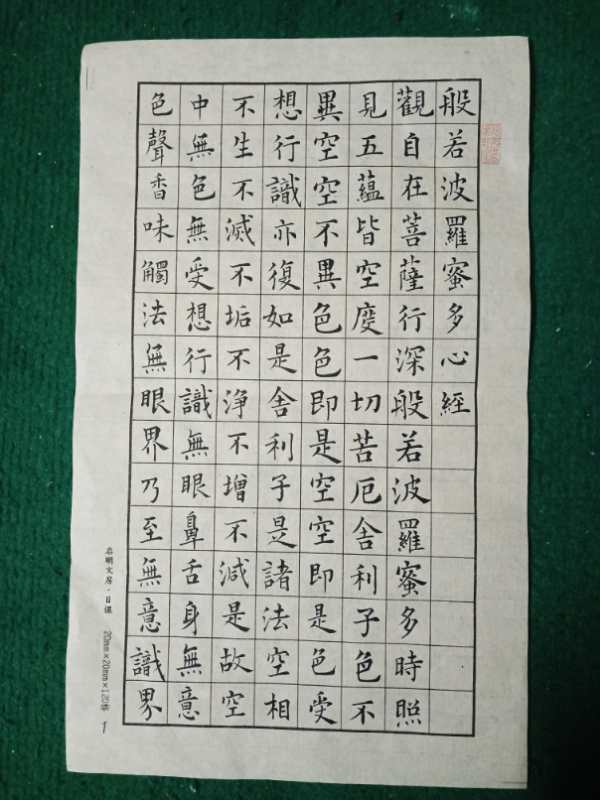 般若波羅蜜多心經
觀自在菩薩行深般若波羅蜜多時照
見五蘊皆空度一切苦厄舍利子色不
異空空不異色色即是空空即是色受
想行識亦復如是舍利子是諸法空相
不生不滅不垢不淨不增不減是故空
中無色無受想行識無眼鼻舌身無意
色聲香味觸法無眼界乃至無意識界
文房·日課 20mm×20mm×120格 1